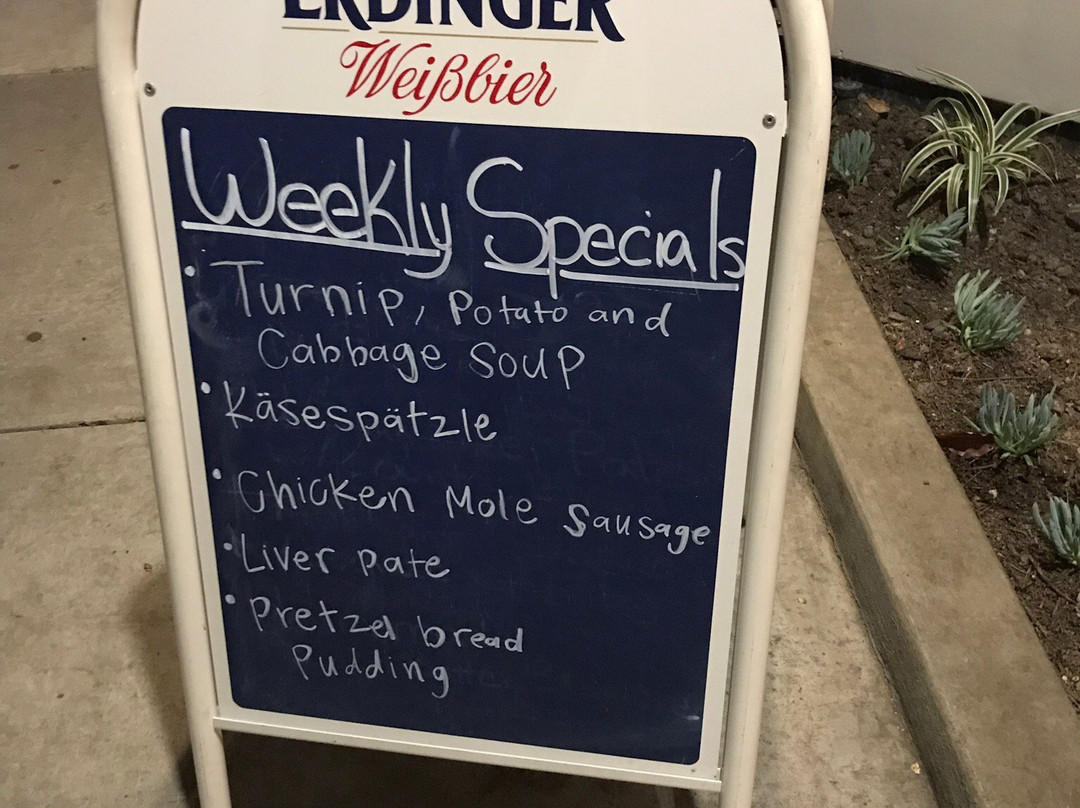 ERDINGER
Weißbier
Weekly Specials
• Turnip, Potato and
Cabbage Soup
• Käsespätzle
• Chicken Mole Sausage
• Liver Pate
• Pretzel bread
Pudding